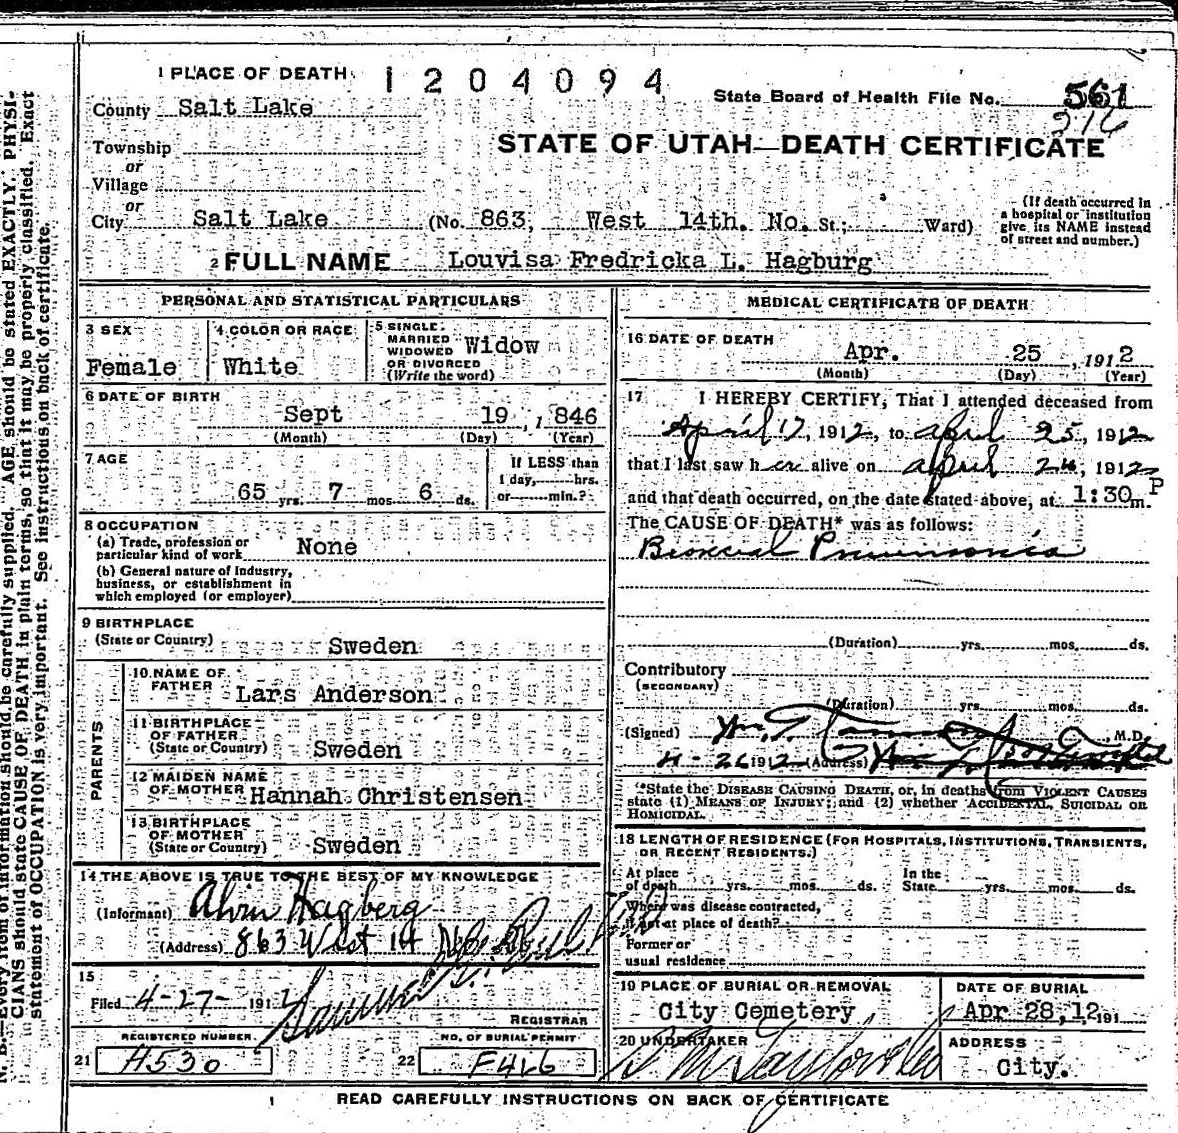 1 PLACE OF DEATH 1204094
State Board of Health File No. 561
216
County Salt Lake
STATE OF UTAH—DEATH CERTIFICATE
Township
or
Village
or
City Salt Lake (No. 863, West 14th. No. St.; Ward)
(If death occurred in
a hospital or institution
give its NAME instead
of street and number.)
2 FULL NAME Louvisa Fredricka L. Hagburg
PERSONAL AND STATISTICAL PARTICULARS
3 SEX
Female
4 COLOR OR RACE
White
5 SINGLE,
MARRIED
WIDOWED
OR DIVORCED
(Write the word)
Widow
6 DATE OF BIRTH
Sept 19, 1846
(Month) (Day) (Year)
7 AGE
65 yrs. 7 mos. 6 ds.
If LESS than
1 day,____hrs.
or____min.?
8 OCCUPATION
(a) Trade, profession or
particular kind of work None
(b) General nature of Industry,
business, or establishment in
which employed (or employer)
9 BIRTHPLACE
(State or Country) Sweden
PARENTS
10 NAME OF
FATHER Lars Anderson
11 BIRTHPLACE
OF FATHER
(State or Country) Sweden
12 MAIDEN NAME
OF MOTHER Hannah Christensen
13 BIRTHPLACE
OF MOTHER
(State or Country) Sweden
14 THE ABOVE IS TRUE TO THE BEST OF MY KNOWLEDGE
(Informant) Alvin Hagberg
(Address) 863 West 14 No.
15
Filed 4-27- 1912
REGISTRAR
REGISTERED NUMBER
21 H530
NO. OF BURIAL PERMIT
22 F466
MEDICAL CERTIFICATE OF DEATH
16 DATE OF DEATH
Apr. 25, 1912
(Month) (Day) (Year)
17 I HEREBY CERTIFY, That I attended deceased from
April 17, 1912, to April 25, 1912
that I last saw her alive on April 24, 1912
and that death occurred, on the date stated above, at 1:30 P m.
The CAUSE OF DEATH* was as follows:
Broncial Pneumonia
(Duration) yrs. mos. ds.
Contributory
(SECONDARY)
(Duration) yrs. mos. ds.
(Signed) Wm. T. M.D.
4-26 1912 (Address)
*State the DISEASE CAUSING DEATH, or, in deaths from VIOLENT CAUSES
state (1) MEANS OF INJURY; and (2) whether ACCIDENTAL, SUICIDAL OR
HOMICIDAL.
18 LENGTH OF RESIDENCE (FOR HOSPITALS, INSTITUTIONS, TRANSIENTS,
OR RECENT RESIDENTS.)
At place
of death yrs. mos. ds.
In the
State yrs. mos. ds.
Where was disease contracted,
if not at place of death?
Former or
usual residence
19 PLACE OF BURIAL OR REMOVAL
City Cemetery
DATE OF BURIAL
Apr 28, 12, 191
20 UNDERTAKER
ADDRESS
City.
READ CAREFULLY INSTRUCTIONS ON BACK OF CERTIFICATE
N. B.—Every item of information should be carefully supplied. AGE should be stated EXACTLY. PHYSI-
CIANS should state CAUSE OF DEATH in plain terms, so that it may be properly classified. Exact
statement of OCCUPATION is very important. See instructions on back of certificate.